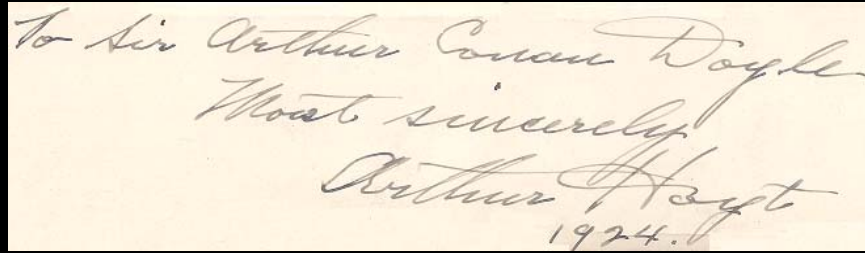 To Sir Arthur Conan Doyle
Most sincerely
Arthur Hoyt
1924.